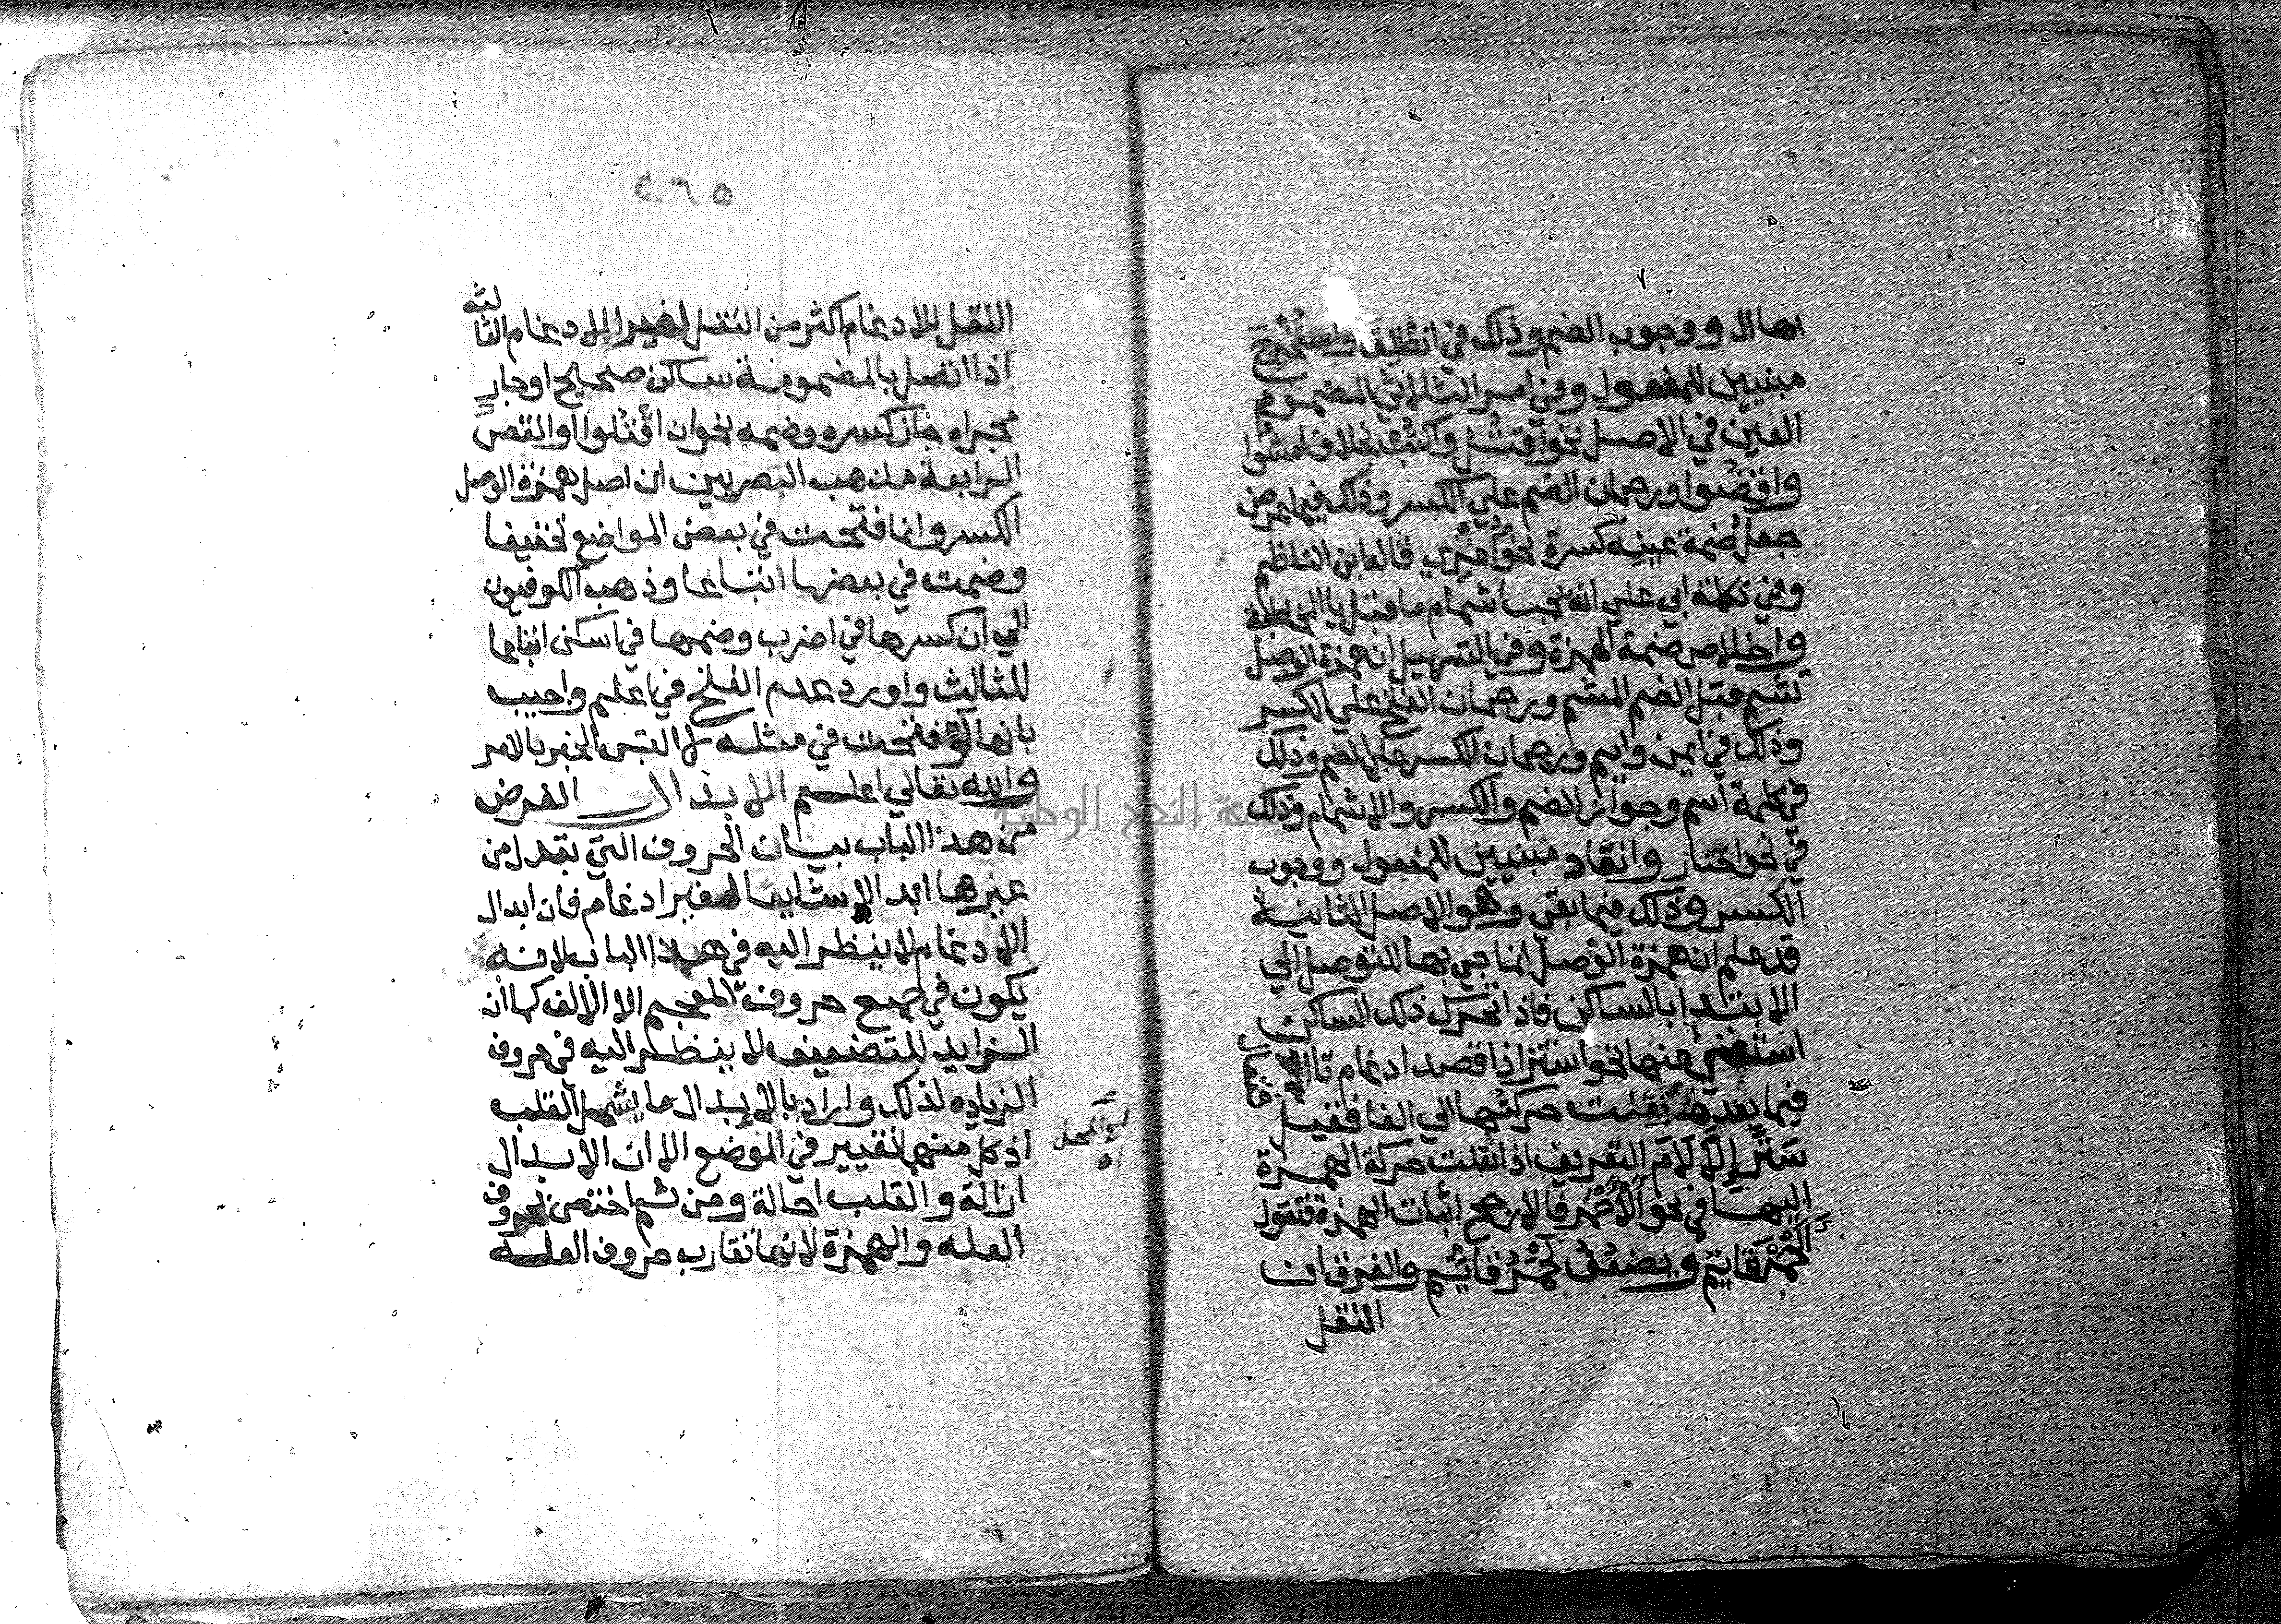 بها ال ووجوب الضم وذلك في انطُلِقَ واستُخْرِجَ
مبنيين للمفعول وفي امر الثلاثي المضموم
العين في الاصل نحو اقتُل واكتُب بخلاف امشُوا
واقضُوا ورجحان الضم علي الكسر وذلك فيما عرض
جعل ضمة عينه كسرة نحو اُغْزِي قاله ابن الناظم
وفي تكملة ابي علي انه يجب اشمام ما قبل يا المخاطبة
واخلاص ضمة الهمزة وفي التسهيل ان همزة الوصل
تشم قبل الضم المشم ورجحان الفتح علي الكسر
وذلك في ايمن وايم ورجحان الكسر علي الضم وذلك
في كلمة اسم وجواز الضم والكسر والاشمام وذلك
في نحو اختار وانقاد مبنيين للمفعول ووجوب
الكسر وذلك فيما بقي وهو الاصل الثانية
قد علم ان همزة الوصل انما جي بها للتوصل الي
الابتدا بالساكن فاذا تحرك ذلك الساكن
استغني عنها نحو استتر اذا قصد ادغام تا
فيما بعدها نقلت حركتها الي الفا فقيل
سَتَّر إلا لام التعريف اذا نقلت حركة الهمزة
اليها في نحو الاحمر فالارجح اثبات الهمزة فتقول
اَلَحْمَر قايم ويضعف لَحْمَرُ قايم والفرق ان
النقل
٢٦٥
النقل للادغام اكثر من النقل لغير الادغام الثالثة
اذا اتصل بالمضمومة ساكن صحيح او جار
مجراه جاز كسره وضمه نحو ان اقْتُلوا او انقص
الرابعة مذهب البصريين ان اصل همزة الوصل
الكسر وانما فتحت في بعض المواضع تخفيفا
وضمت في بعضها اتباعا وذهب الكوفيون
الي ان كسرها في اضرب وضمها في اسكن اتباعا
للثالث واورد عدم الفتح في اعلم واجيب
بانها لو فتحت في مثله لالتبس الخبر بالامر
والله تعالي اعلم الابدال الغرض
من هذا الباب بيان الحروف التي تبدل من
غيرها ابدالا شايعا لغير ادغام فان ابدال
الادغام لا ينظر اليه في هذا الباب لانه
يكون في جميع حروف المعجم الا الالف كما ان
الزايد للتضعيف لا ينظر اليه في حروف
الزياده لذلك واراد بالابدال ما يشمل القلب
اذ كل منهما تغيير في الموضع الا ان الابدال
ازالة والقلب احالة ومن ثم اختص بحروف
العله والهمزة لانها تقارب حروف العلة
جامعة النجاح الوطنية